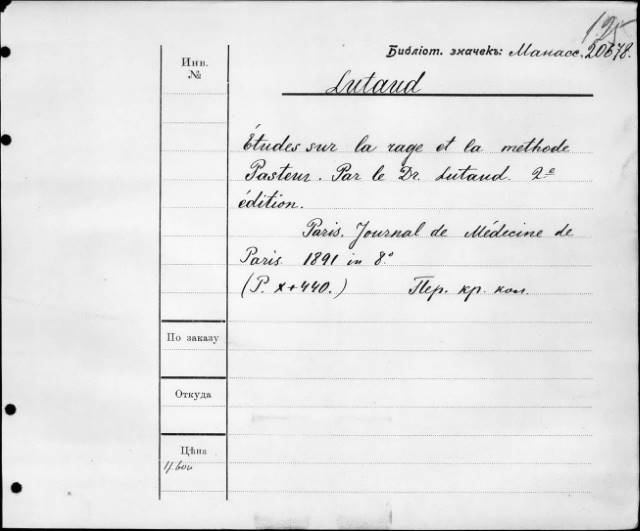 Библіот. значекъ: Манасс. 20678.
Инв.
№
Lutaud
Études sur la rage et la méthode
Pasteur. Par le Dr. Lutaud. 2e
édition.
Paris. Journal de Médecine de
Paris 1891 in 8°
(P. x+440.) Пер. кр. кол.
По заказу
Откуда
Цѣна